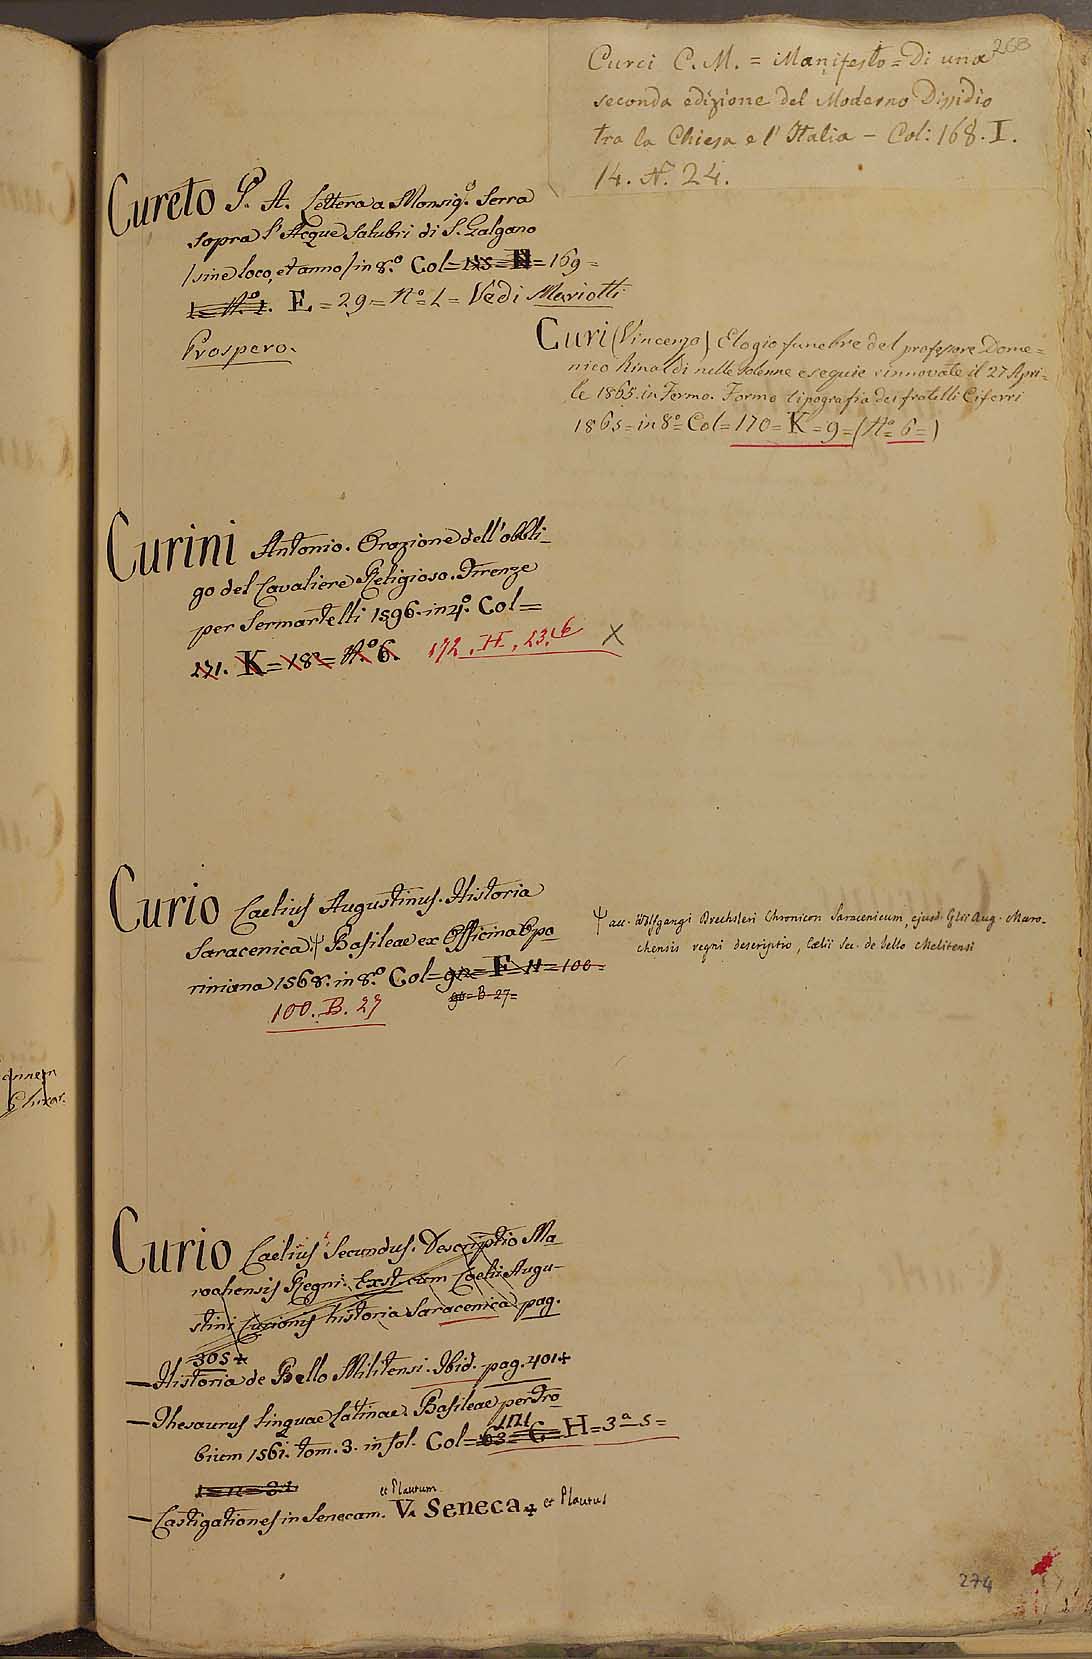 268
Curci C. M. = Manifesto = Di una
seconda edizione del Moderno Dissidio
tra la Chiesa e l'Italia – Col: 168. I.
14. N. 24.
Cureto P. A. Lettera a Monsig.r Serra
sopra l'Acque Salubri di S. Galgano
/sine loco, et anno/ in 8.o Col= 169 =
E = 29 = No = 1 = Vedi Mariotti
Prospero.
Curi (Vincenzo) Elogio funebre del professore Dome=
nico Rinaldi nelle solenne esequie rinnovate il 27 Apri=
le 1865 in Fermo. Fermo tipografia dei fratelli Ciferri
1865 = in 8o = Col = 170 = K = 9 = (No = 6 =)
Curini Antonio. Orazione dell'obbli=
go del Cavaliere Religioso. Firenze
per Sermartelli 1596. in 4o. Col =
171. K = 18 = N.o 6. 172. H. 23. 6 X
Curio Caelius Augustinus. Historia
Saracenica. Ψ Basileae ex Officina Opo
riniana 1568. in 8.o Col = 92 = F = 11 = 100 =
90 = B = 27 =
100. B. 27
Ψ au. Wolfgangi Drechsleri Chronicon Saracenicum, ejusd.
chensis regni descriptio, Cælii Sec. de bello Melitensi
Curio Caelius Secundus. Descriptio Ma
rochensis Regni. Exst. cum Coelii Augu=
stini Curionis historia Saracenica pag.
305 +
— Historia de Bello Militensi. Ibid. pag. 401 +
— Thesaurus linguae latinae. Basileae per Fro
bium 1561. tom. 3. in fol. Col = 63 = C = H = 3a 5 =
et Plautum
— Castigationes in Senecam. V. Seneca + et Plautus
274